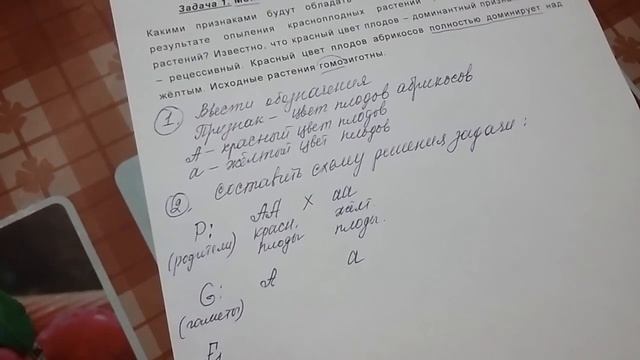 Задача 1.
Какими признаками будут обладать
результате опыления красноплодных растений
растений? Известно, что красный цвет плодов – доминантный
– рецессивный. Красный цвет плодов абрикосов полностью доминирует над
жёлтым. Исходные растения гомозиготны.
1. Ввести обозначения
Признак – цвет плодов абрикосов
А – красный цвет плодов
а – жёлтый цвет плодов
2. составить схему решения задачи:
Р: АА × аа
(родители) красн. жёлт
плоды плоды.
G: А а
(гаметы)
F1